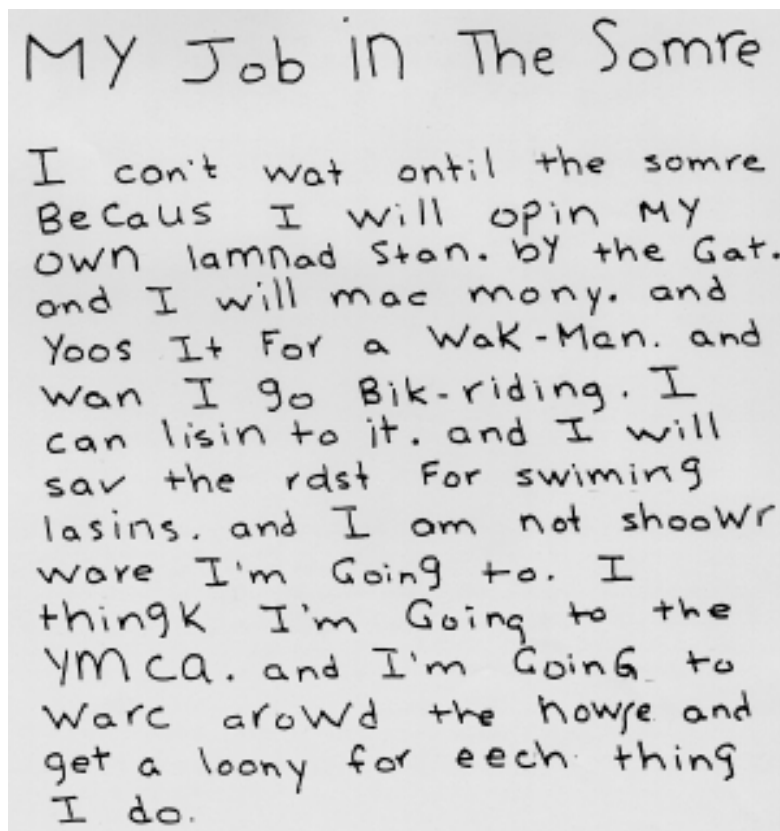 My Job in The Somre
I con't wat ontil the somre
BeCaus I will opin My
own lamnad Stan. by the Gat.
and I will mac mony. and
Yoos It For a Wak-Man. and
wan I go Bik-riding. I
can lisin to it. and I will
sav the rdst For swiming
lasins. and I am not shoowr
ware I'm Going to. I
thingk I'm Going to the
YMCA. and I'm GoinG to
Warc arowd the howse and
get a loony for eech thing
I do.